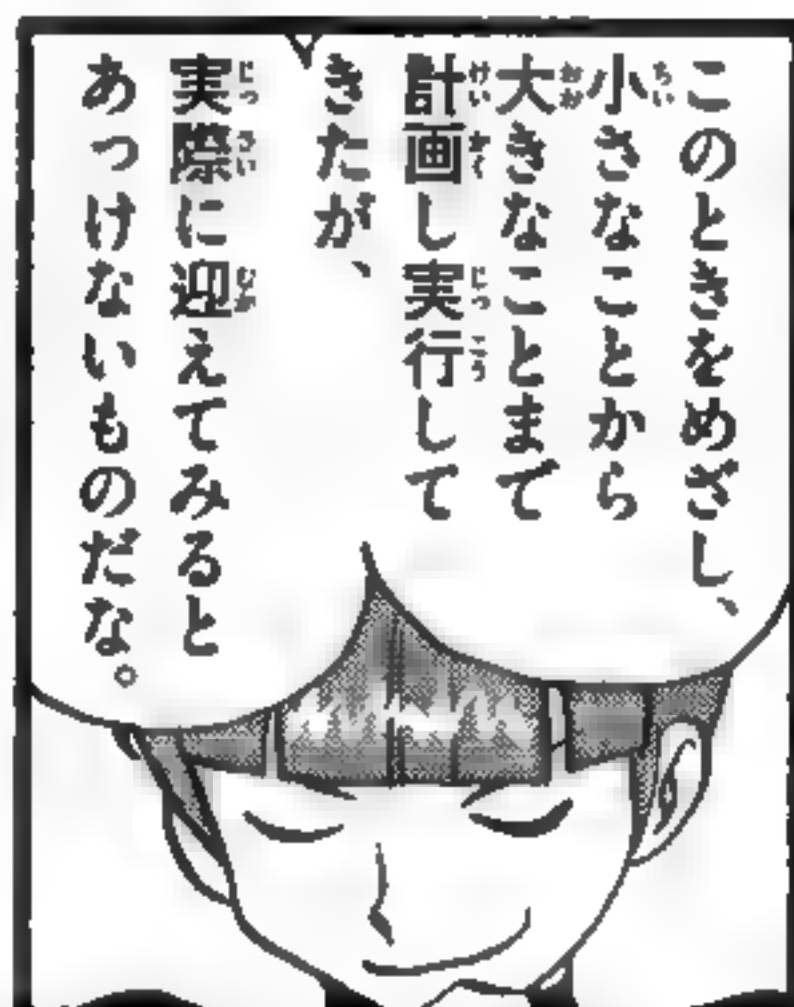 このときをめざし、
小さなことから
大きなことまで
計画し実行して
きたが、
実際に迎えてみると
あっけないものだな。